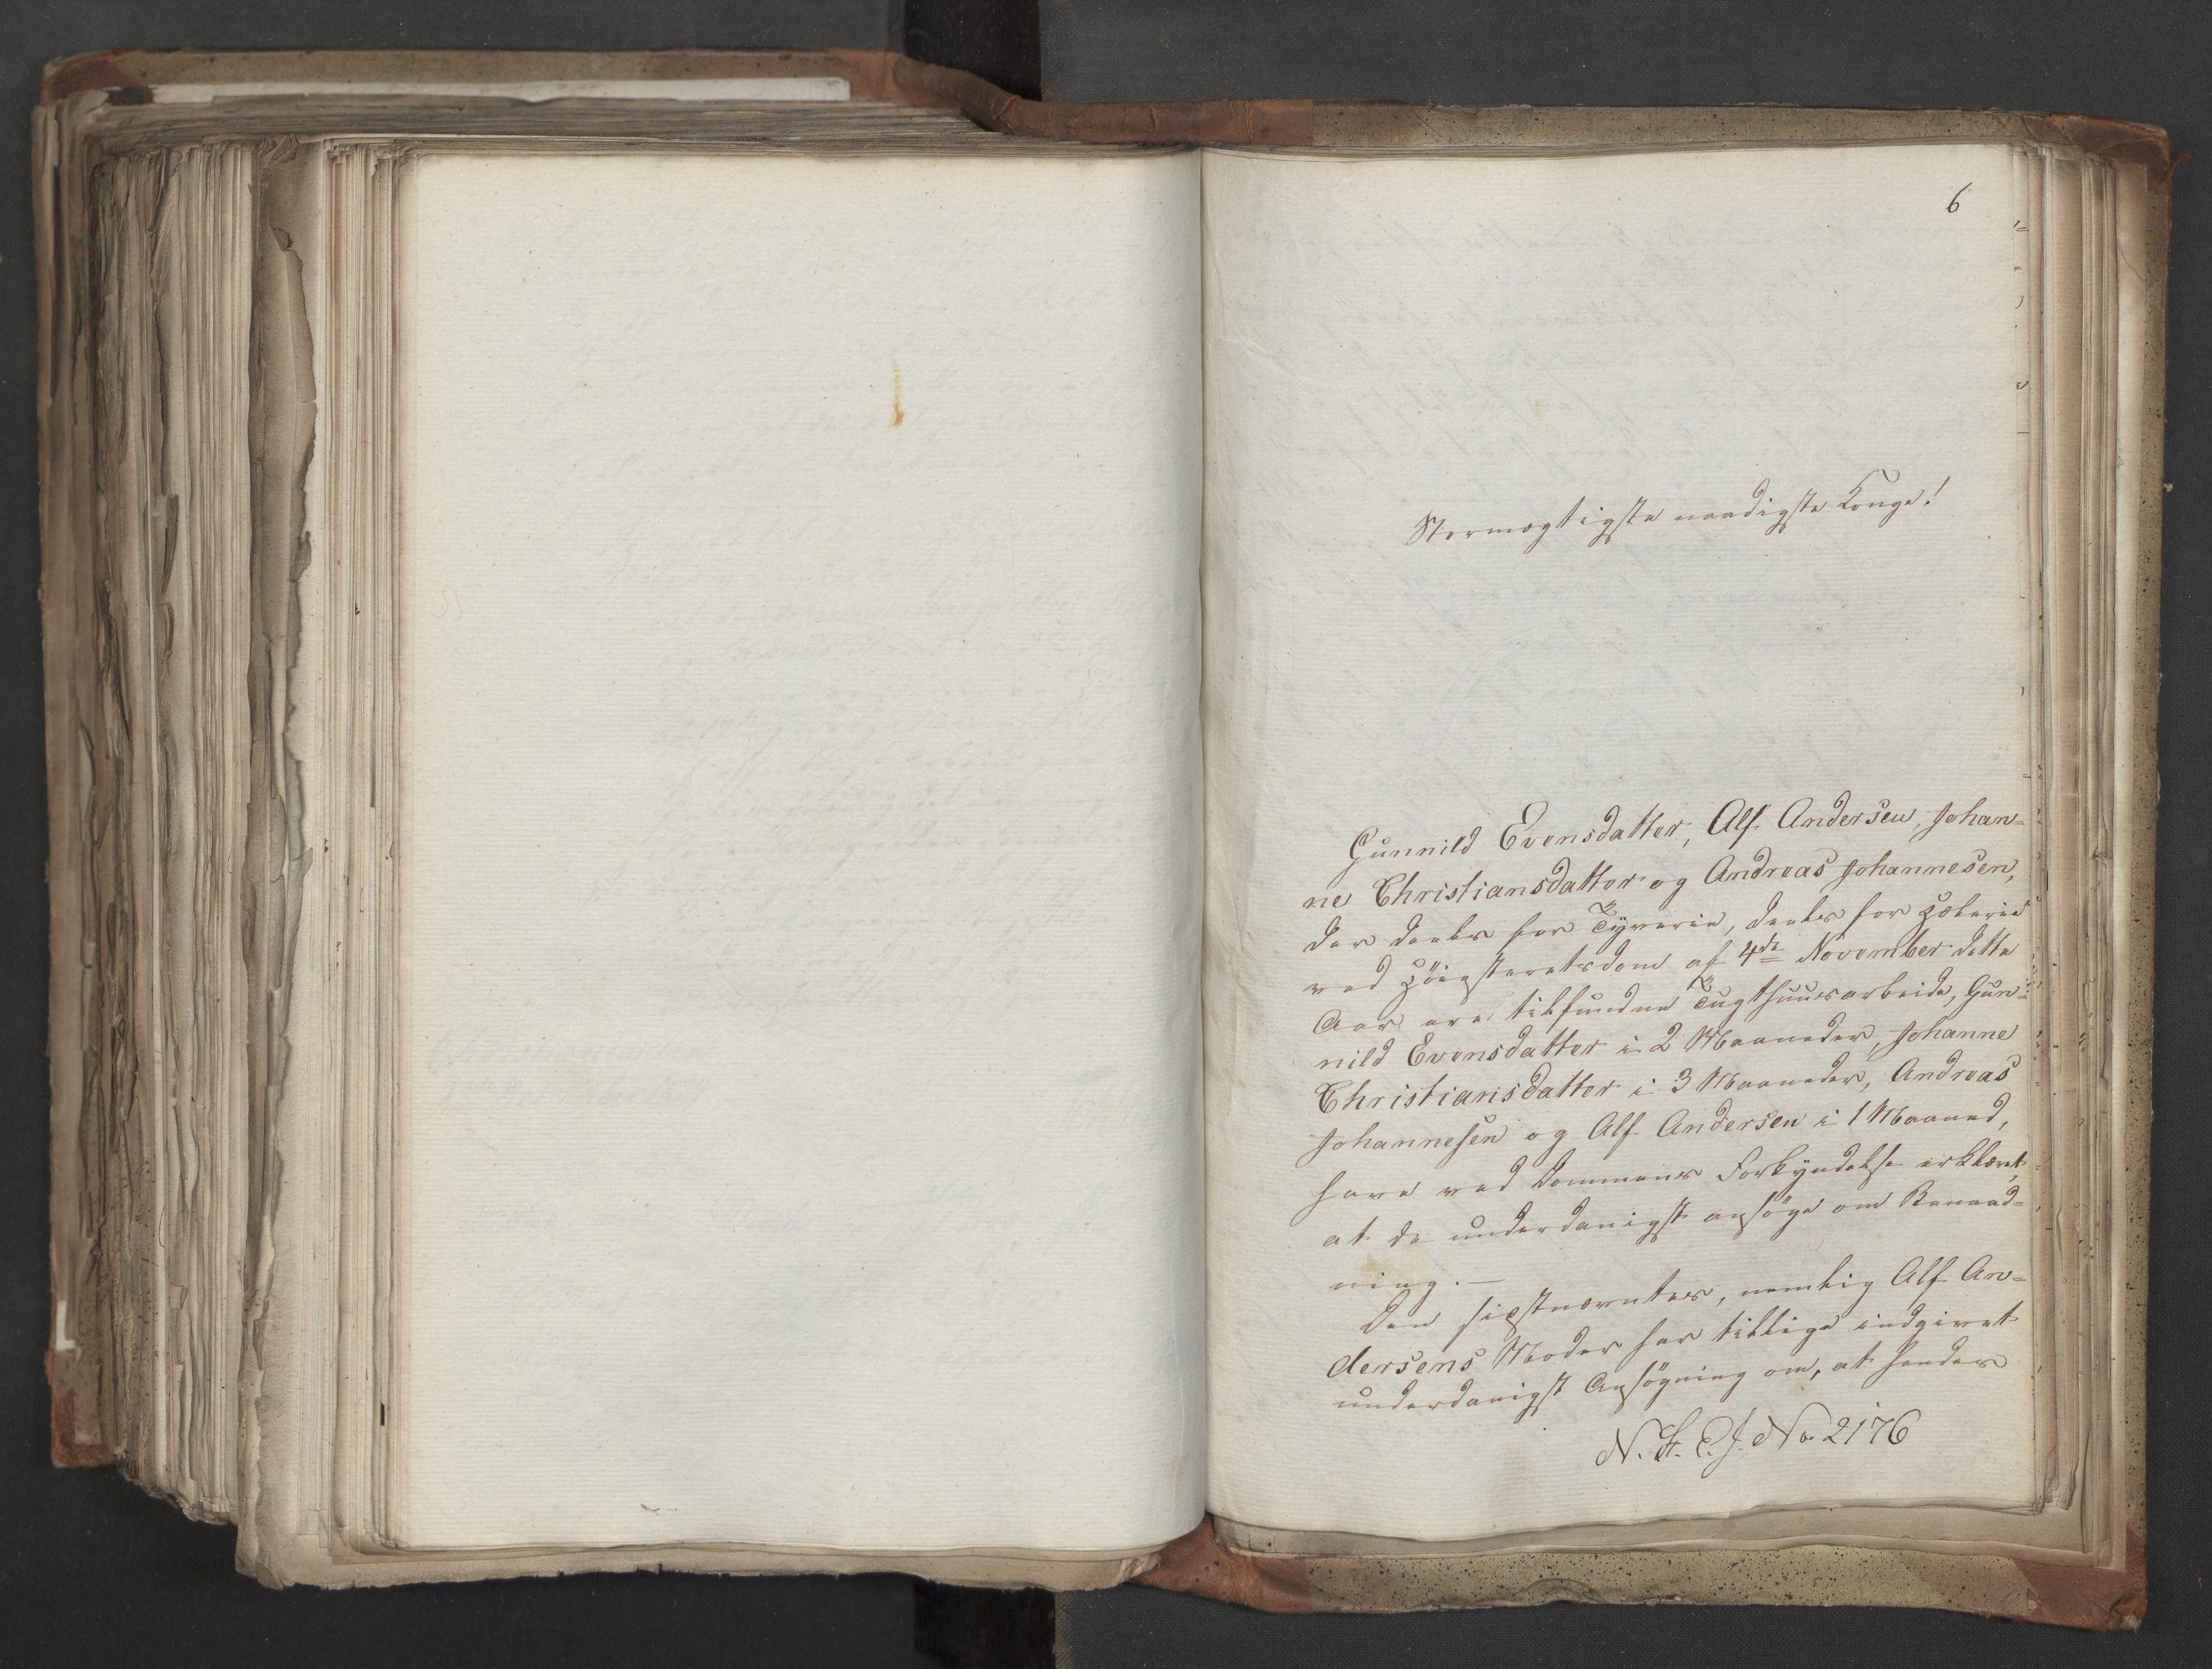 6
Stormægtigste naadigste Konge!
Gunnild Evensdatter, Alf Andersen, Johan=
ne Christiansdatter og Andreas Johannesen,
der deels for Tyverie, deels for Hæleri
ved Høiesteretsdom af 4de November dette
Aar ere tilfundne Tugthuusarbeide, Gun=
nild Evensdatter i 2 Maaneder, Johanne
Christiansdatter i 3 Maaneder, Andreas
Johannesen og Alf Andersen i 1 Maaned,
have ved Dommens Forkyndelse erklæret,
at de underdanigst ansøge om Benaad=
ning. —
Den sidstnævntes, nemlig Alf An=
dersens Moder har tillige indgivet
underdanigst Ansøgning om, at hendes
N. St. E. J. No 2176